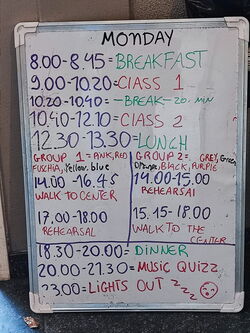 MONDAY
8.00-8.45=BREAKFAST
9.00-10.20=CLASS 1
10.20-10.40=-BREAK-20.MIN
10.40-12.10=CLASS 2
12.30-13.30=LUNCH
GROUP 1=PINK,RED
FUSHIA, Yellow, blue
14.00-16.45
WALK TO CENTER
17.00-18.00
REHEARSAL
GROUP 2= GREY, Green
Orange, BLACK, PURPLE
14.00-15.00
REHEARSAL
15.15-18.00
WALK TO THE
CENTER
18.30-20.00=DINNER
20.00-21.30=MUSIC QUIZZ
23.00=LIGHTS OUT zzz